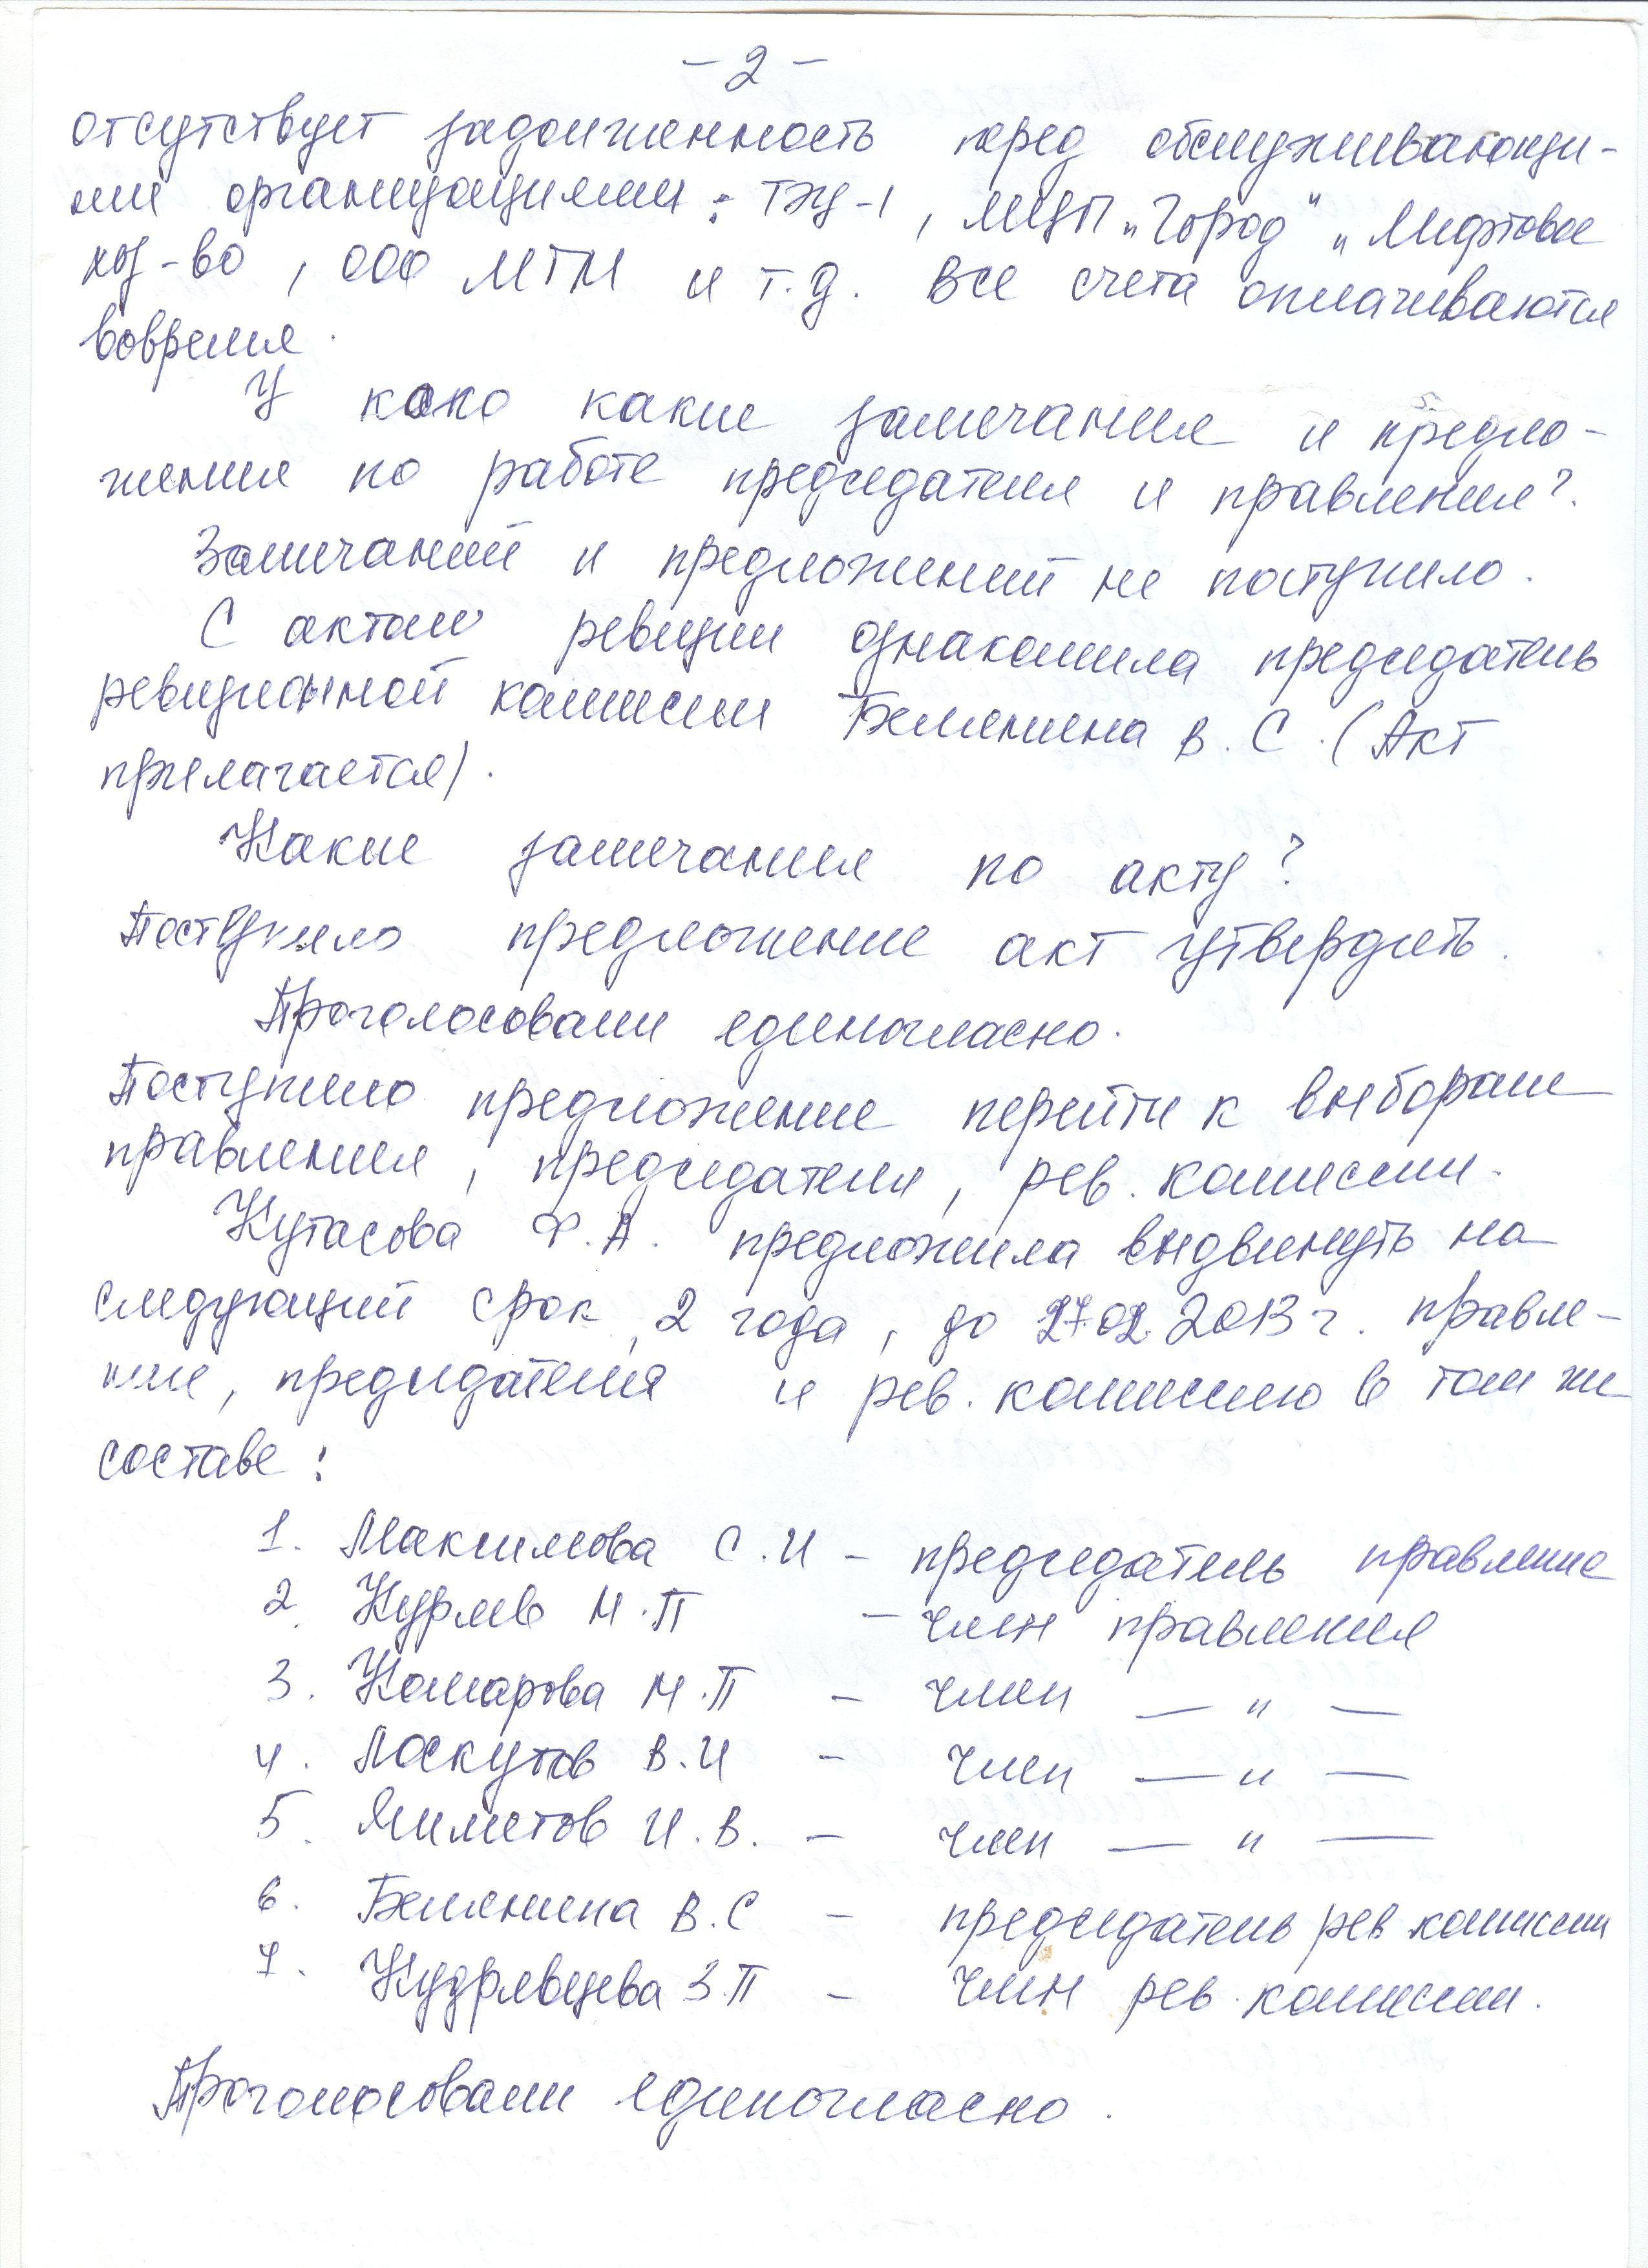 - 2 -
отсутствует задолженность перед обслуживающи-
ми организациями: ТЭЦ-1, МЦП „Город" „Лифтовое
хоз-во, ООО МТМ и т.д. Все счета оплачиваются
вовремя.
У кого какие замечания и предло-
жения по работе председателя и правления?.
Замечаний и предложений не поступило.
С актом ревизии ознакомила председатель
ревизионной комиссии Белянина В.С. (Акт
прилагается).
Какие замечания по акту?
Поступило предложение акт утвердить.
Проголосовали единогласно.
Поступило предложение перейти к выборам
правления, председателя, рев. комиссии.
Кутасова Ф.А. предложила выдвинуть на
следующий срок, 2 года, до 27.02.2013 г. правле-
ние, председателя и рев. комиссию в том же
составе:
1. Максимова С.И - председатель правление
2. Куряев М.П - член правления
3. Комарова М.П - член — " —
4. Лоскутов В.И - член — " —
5. И.В. - член — " —
6. Белянина В.С - председатель рев комиссии
7. Кудрявцева З.П - член рев. комиссии.
Проголосовали единогласно.